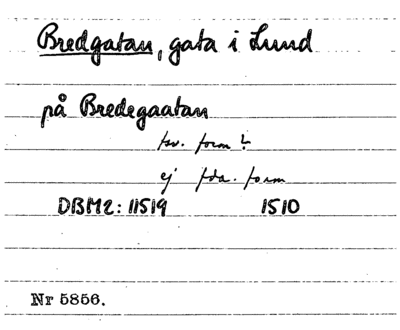 Bredgatan, gata i Lund
på Bredegaatan
sv. form?
ej fda. form
DBM2: 11519 1510
Nr 5856.